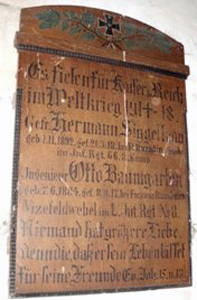 Es fielen für Kaiser u. Reich
im Weltkrieg 1914-18
Gefr. Hermann
geb. 7.11.1892 gef. 21.3.18 b.
im Inf. Rgt. 66 8. Komp.
Otto Baumgarten
geb. 7.6.1884 gef.
Vizefeldwebel im L. Inf. Rgt. No 8.
Niemand hat größere Liebe,
denn die, daß er sein Leben lässet
für seine Freunde Ev. Joh. 15. v. 13.